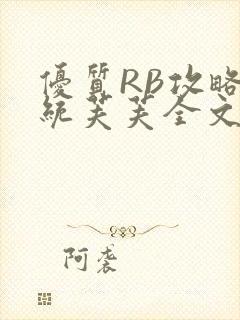 優質RB攻略
統芙芙全文
阿袭